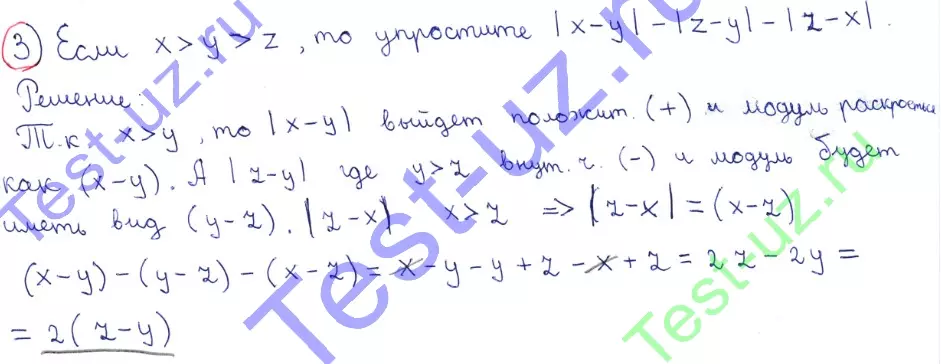 3) Если x>y>z, то упростите |x-y|-|z-y|-|z-x|.
Решение:
Т.к x>y, то |x-y| выйдет положит. (+) и модуль раскроется
как (x-y). А |z-y| где y>z внут. ч. (-) и модуль будет
иметь вид (y-z). |z-x| x>z => |z-x|=(x-z)
(x-y)-(y-z)-(x-z)=x-y-y+z-x+z=2z-2y=
=2(z-y)
Test-uz.ru
Test-uz.ru
Test-uz.ru